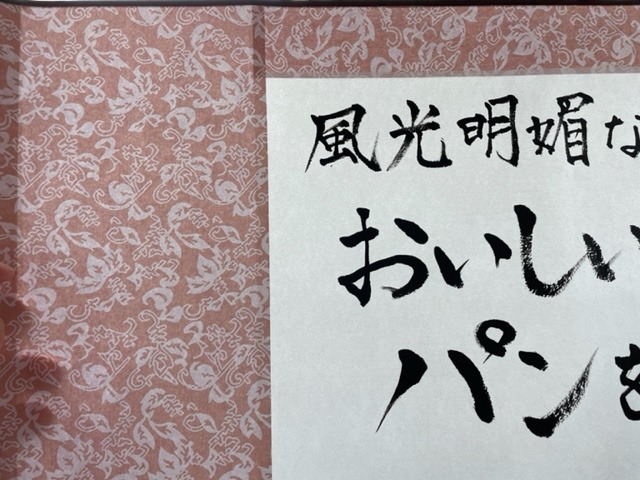 風光明媚な
おいしい
パンを